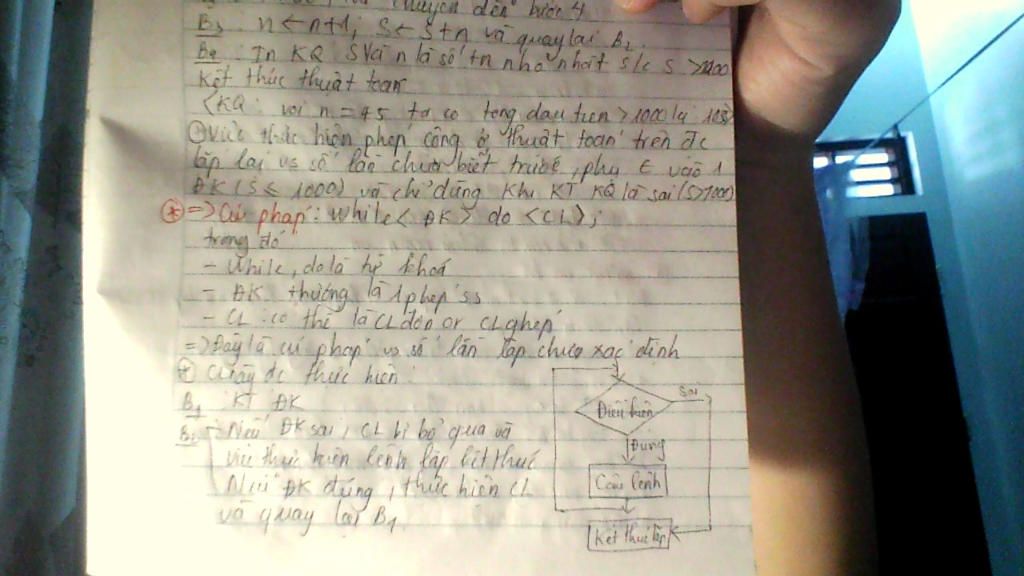 chuyển đến bước 4
B3: n ← n+1, S ← S+n và quay lại B2.
B4: In KQ S và n là số tn nhỏ nhất s/c S > 1000
Kết thúc thuật toán
(KQ: với n = 45 ta có tổng đầu tiên > 1000 là
Việc thực hiện phép cộng ở thuật toán trên đc
lặp lại vs số lần chưa biết trước, phụ E vào 1
ĐK (S ≤ 1000) và chỉ dừng khi KT KQ là sai (S>1000)
=> Cú pháp: While <ĐK> do <CL>;
trong đó
- While, do là từ khoá
- ĐK thường là 1 phép ss
- CL: có thể là CL đơn or CL ghép
=> Đây là cú pháp vs số lần lặp chưa xác định
đc thực hiện:
B1: KT ĐK
B2: - Nếu ĐK sai, CL bị bỏ qua và
việc thực hiện lệnh lặp kết thúc
Nếu ĐK đúng, thực hiện CL
và quay lại B1
Điều kiện
Sai
Đúng
Câu lệnh
Kết thúc lặp